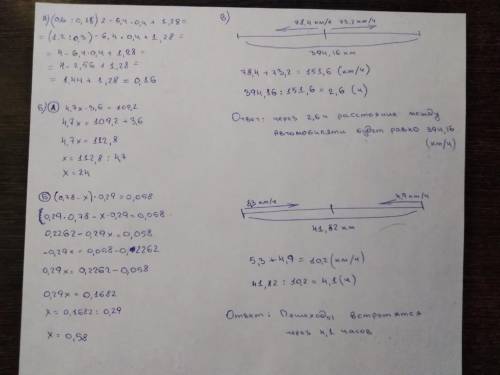 а) (0,6 : 0,18) 2 - 6,4 · 0,4 + 1,28 =
= (1,2 : 0,3) - 6,4 · 0,4 + 1,28 =
= 4 - 6,4 · 0,4 + 1,28 =
= 4 - 2,56 + 1,28 =
= 1,44 + 1,28 = 0,16
б) А 4,7x - 3,6 = 109,2
4,7x = 109,2 + 3,6
4,7x = 112,8
x = 112,8 : 4,7
x = 24
Б (0,78 - x) · 0,29 = 0,058
0,29 · 0,78 - x · 0,29 = 0,058
0,2262 - 0,29x = 0,058
-0,29x = 0,058 - 0,2262
0,29x = 0,2262 - 0,058
0,29x = 0,1682
x = 0,1682 : 0,29
x = 0,58
в)
78,4 км/ч 73,2 км/ч
394,16 км
78,4 + 73,2 = 151,6 (км/ч)
394,16 : 151,6 = 2,6 (ч)
Ответ: через 2,6ч расстояние между
автомобилями будет равно 394,16
(км/ч)
5,3 км/ч 4,9 км/ч
41,82 км
5,3 + 4,9 = 10,2 (км/ч)
41,82 : 10,2 = 4,1 (ч)
Ответ: Пешеходы встретятся
через 4,1 часов